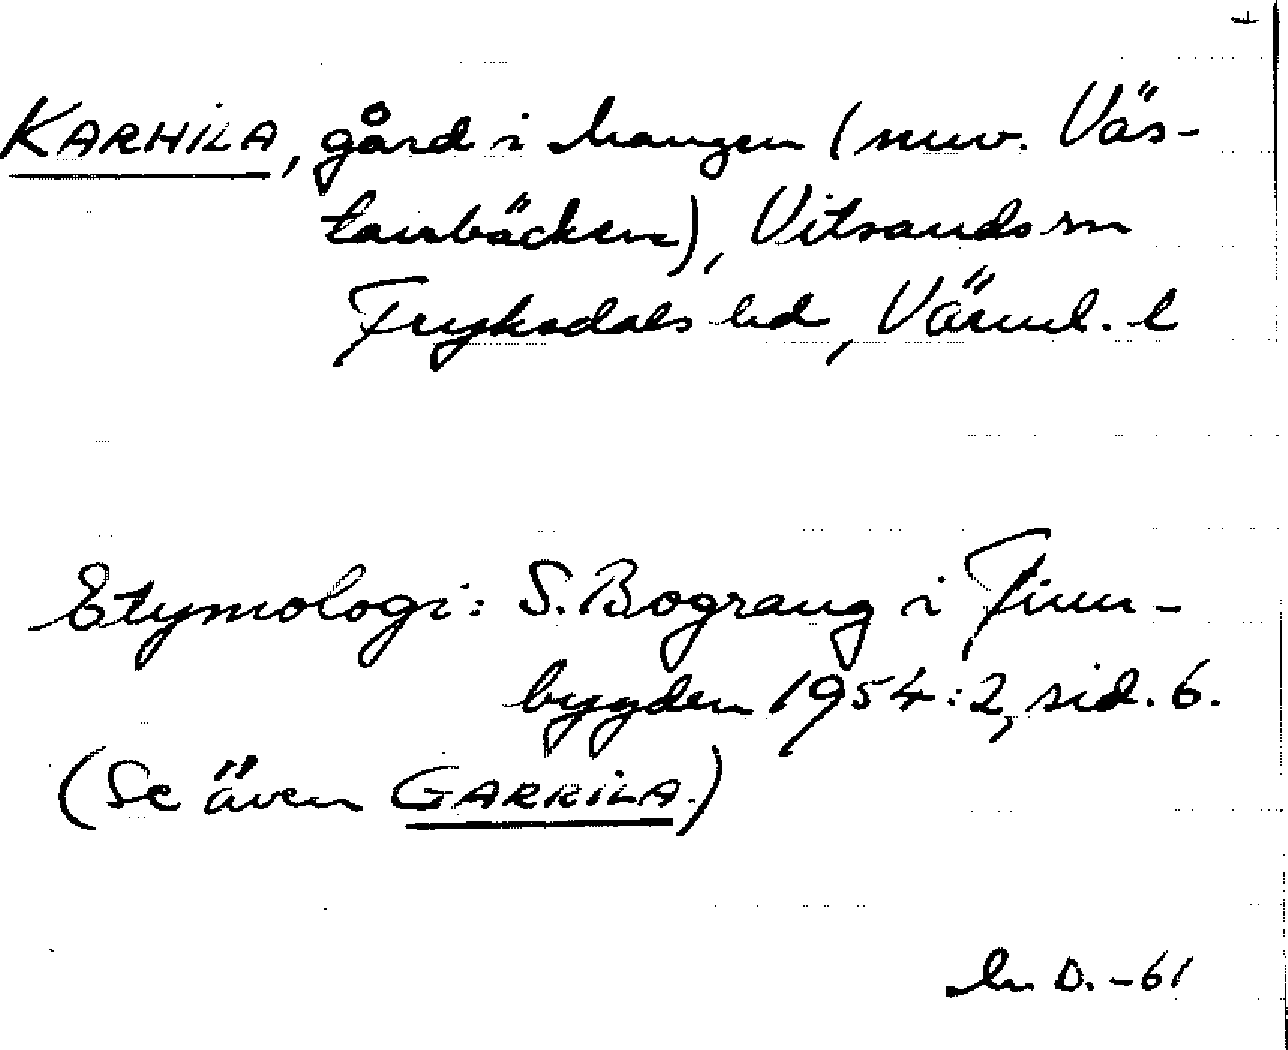 KARHILA, gård i Mangen (nuv.Väs-
tanbäcken), Vitsands sn
Fryksdals hd, Värml. l
Etymologi: S. Bograng i Finn-
bygden 1954:2, sid. 6.
(Se även GARRILA.)
D. -61